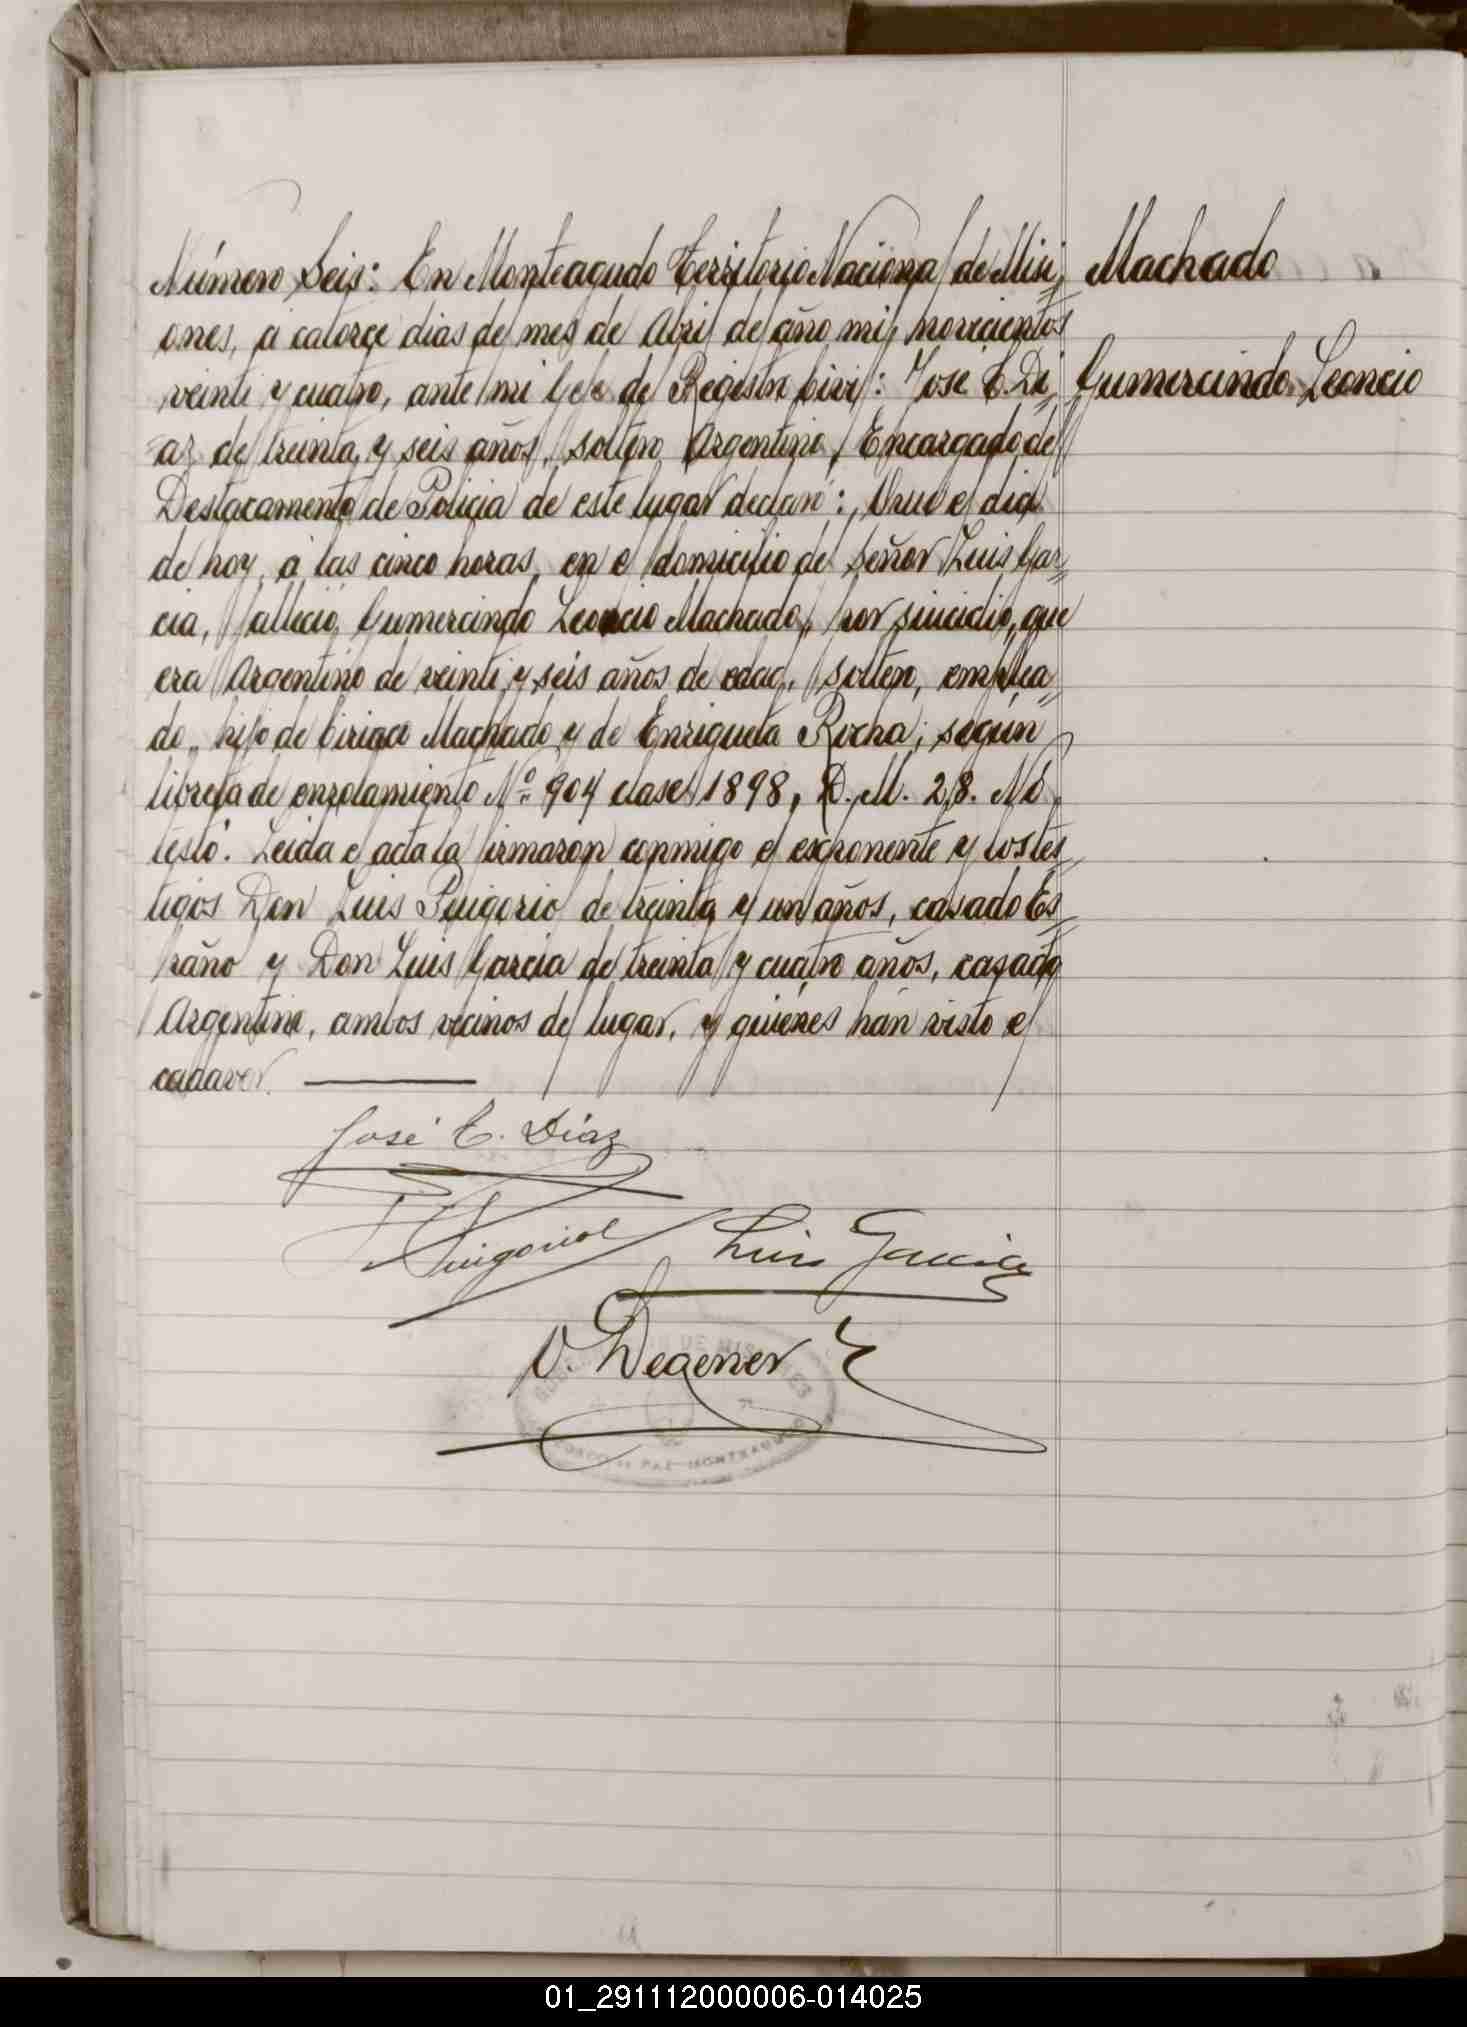 Número Seis: En Monteagudo Territorio Nacional de Misi-
Machado
ones, á catorce dias del mes de Abril del año mil novecientos
veinti y cuatro, ante mi Jefe del Registro Civil: José E. Di-
Gumercindo Leoncio
az de treinta y seis años, soltero, Argentino, Encargado del
Destacamento de Policia de este lugar declaró: Que el dia
de hoy, á las cinco horas, en el domicilio del Señor Luis Gar-
cia, falleció Gumercindo Leoncio Machado, por suicidio, que
era Argentino de veinti y seis años de edad, soltero, emplea-
do, hijo de Ciriaca Machado y de Enriqueta Rocha; según
libreta de enrolamiento Nº 904 clase 1898, D. M. 28. Nó
testó. Leida el acta la firmaron conmigo el exponente y los tes-
tigos Don Luis Puigoriol de treinta y un años, casado Es-
pañol y Don Luis Garcia de treinta y cuatro años, casado
Argentino, ambos vecinos del lugar, y quiénes hán visto el
cadaver.
José E. Diaz
L Puigoriol Luis Garcia
V. Degener
DE MISIONES
DE PAZ MONTEAGUDO
01_291112000006-014025